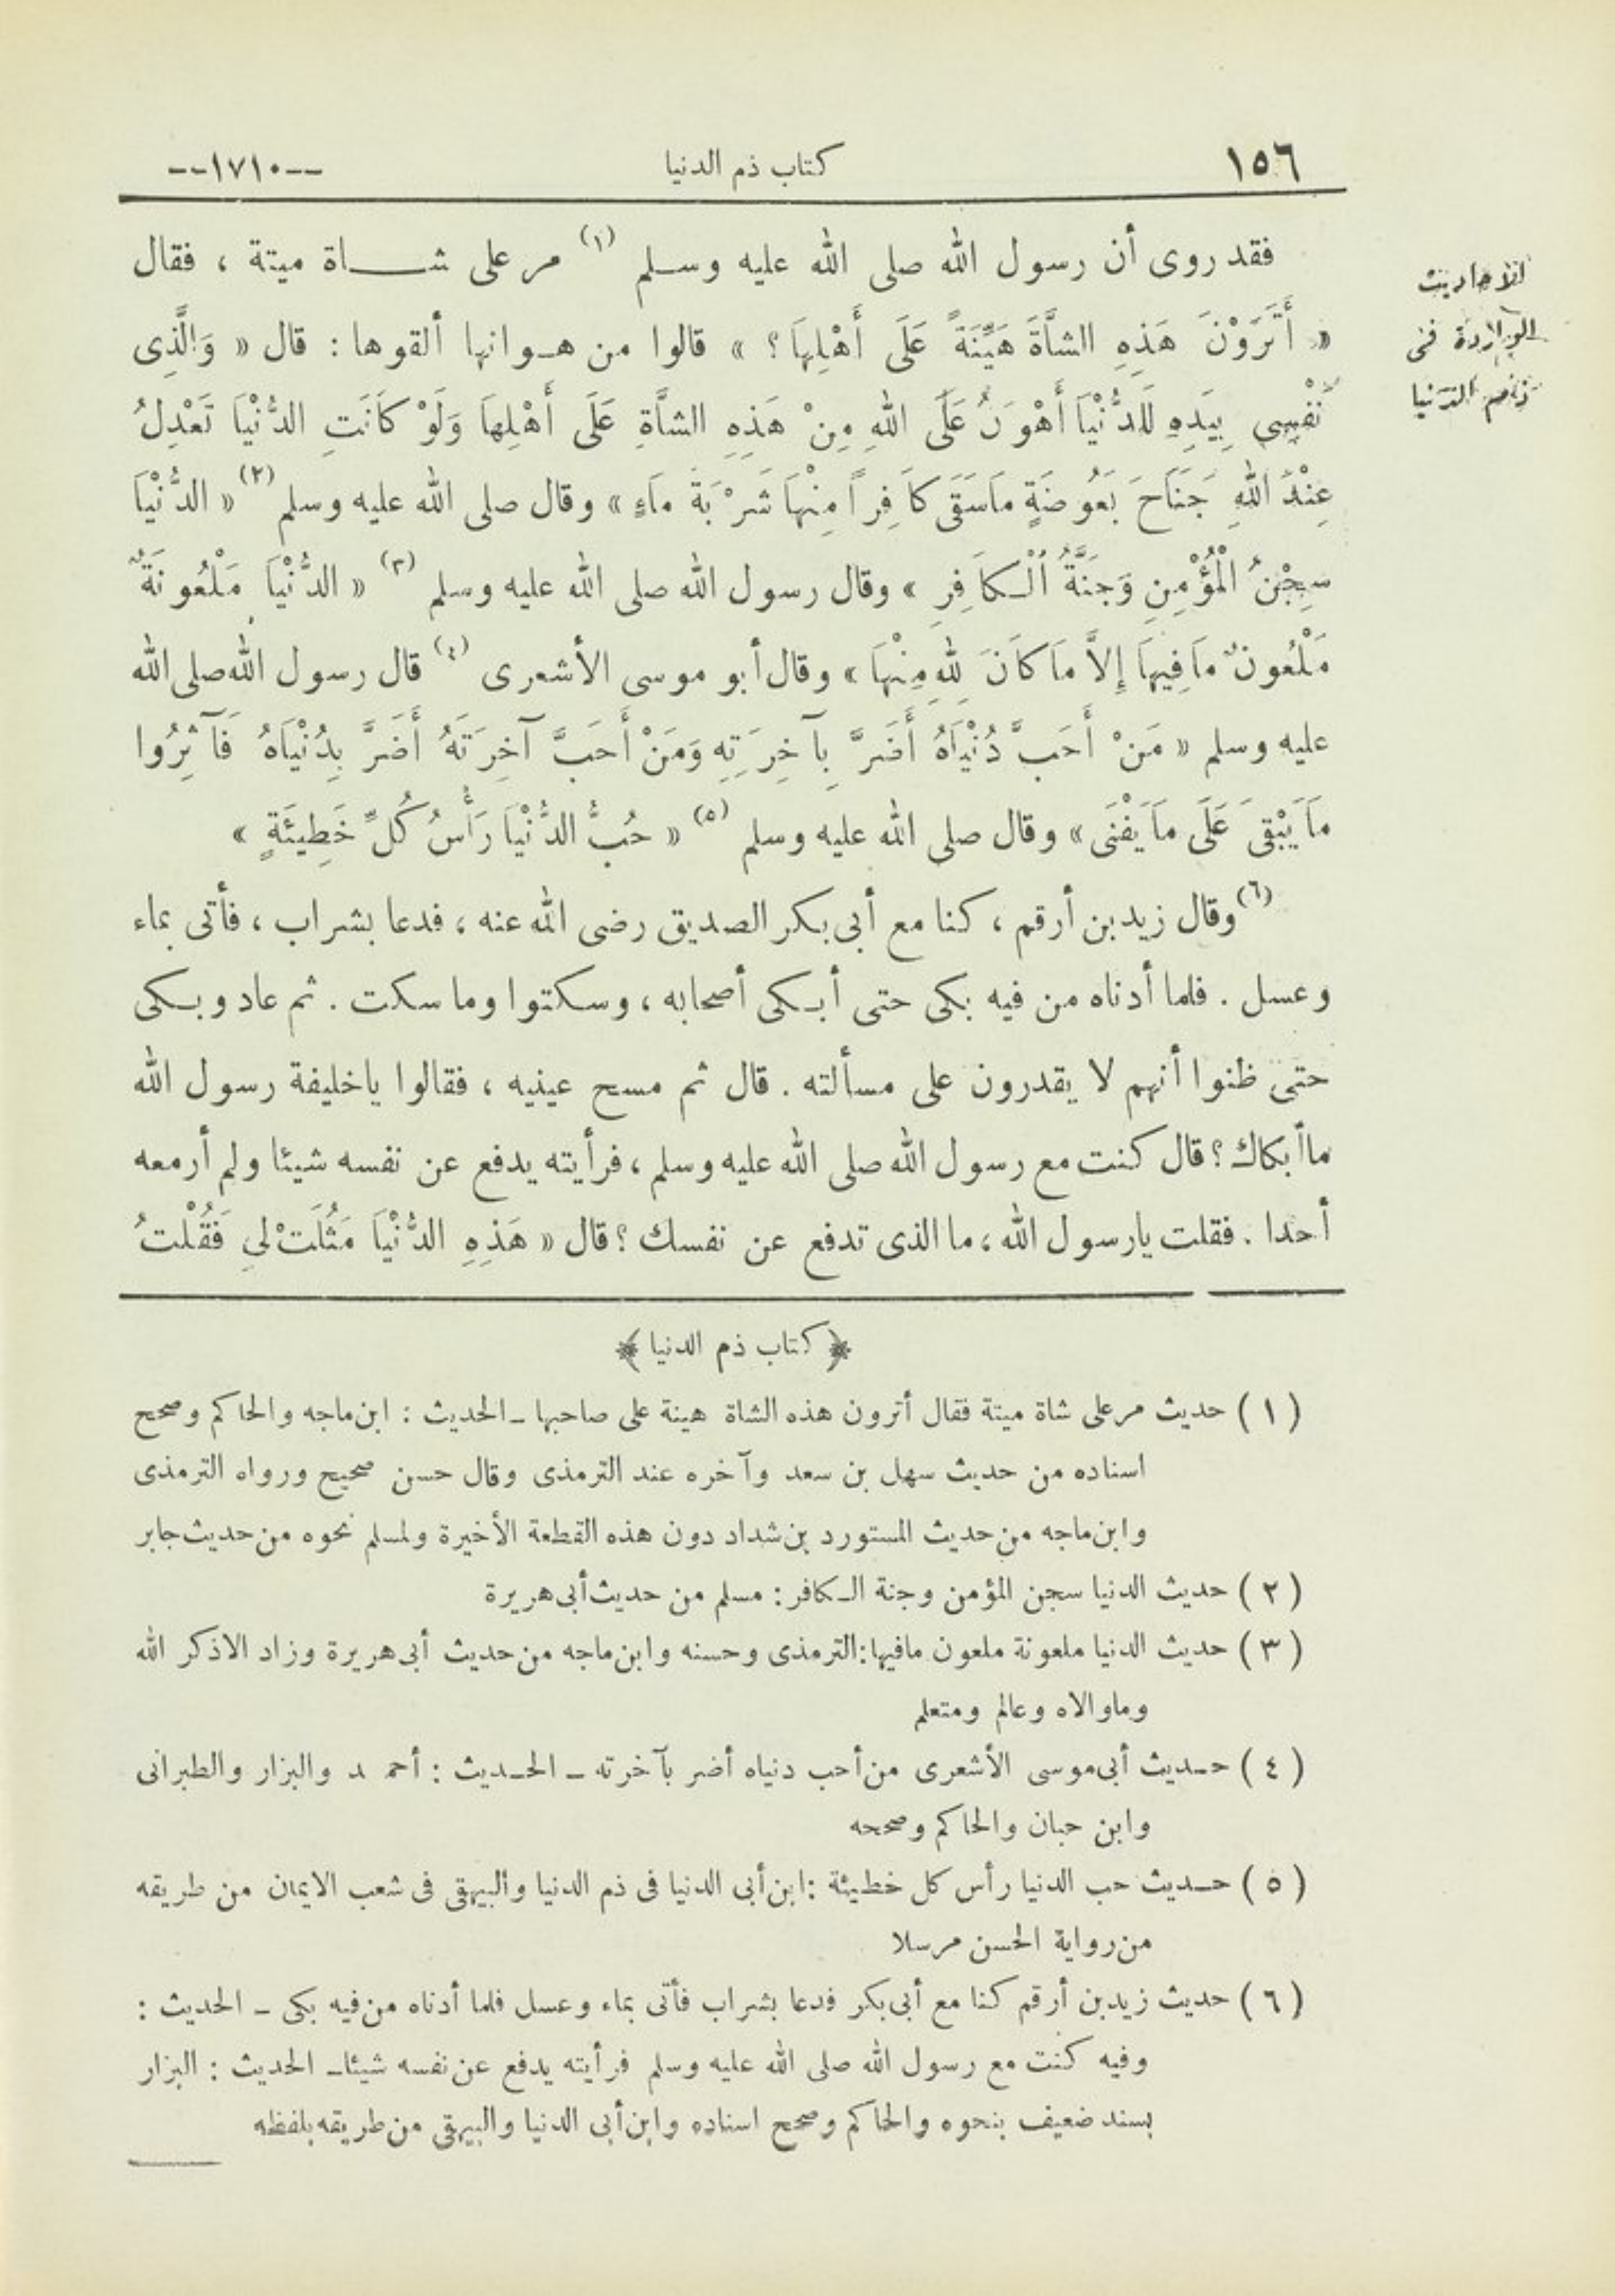 ١٥٦
كتاب ذم الدنيا
--١٧١٠--
الأحاديث
الواردة فى
ذم الدنيا
فقد روى أن رسول الله صلى الله عليه وسلم (١) مر على شاة ميتة ، فقال
« أَتَرَوْنَ هَذِهِ الشَّاةَ هَيِّنَةً عَلَى أَهْلِهَا ؟ » قالوا من هوانها ألقوها : قال « وَالَّذِى
نَفْسِى بِيَدِهِ لَلدُّنْيَا أَهْوَنُ عَلَى اللهِ مِنْ هَذِهِ الشَّاةِ عَلَى أَهْلِهَا وَلَوْ كَانَتِ الدُّنْيَا تَعْدِلُ
عِنْدَ اللهِ جَنَاحَ بَعُوضَةٍ مَاسَقَى كَافِراً مِنْهَا شَرْبَةَ مَاءٍ » وقال صلى الله عليه وسلم (٢) « الدُّنْيَا
سِجْنُ الْمُؤْمِنِ وَجَنَّةُ الْكَافِرِ » وقال رسول الله صلى الله عليه وسلم (٣) « الدُّنْيَا مَلْعُونَةٌ
مَلْعُونٌ مَافِيهَا إِلاَّ مَا كَانَ لِلهِ مِنْهَا » وقال أبو موسى الأشعرى (٤) قال رسول الله صلى الله
عليه وسلم « مَنْ أَحَبَّ دُنْيَاهُ أَضَرَّ بِآخِرَتِهِ وَمَنْ أَحَبَّ آخِرَتَهُ أَضَرَّ بِدُنْيَاهُ فَآثِرُوا
مَايَبْقَى عَلَى مَايَفْنَى » وقال صلى الله عليه وسلم (٥) « حُبُّ الدُّنْيَا رَأْسُ كُلِّ خَطِيئَةٍ »
(٦) وقال زيد بن أرقم ، كنا مع أبى بكر الصديق رضى الله عنه ، فدعا بشراب ، فأتى بماء
وعسل . فلما أدناه من فيه بكى حتى أبكى أصحابه ، وسكتوا وما سكت . ثم عاد وبكى
حتى ظنوا أنهم لا يقدرون على مسألته . قال ثم مسح عينيه ، فقالوا ياخليفة رسول الله
ماأبكاك ؟ قال كنت مع رسول الله صلى الله عليه وسلم ، فرأيته يدفع عن نفسه شيئا ولم أر معه
أحدا . فقلت يارسول الله ، ما الذى تدفع عن نفسك ؟ قال « هَذِهِ الدُّنْيَا مَثُلَتْ لِى فَقُلْتُ
﴿ كتاب ذم الدنيا ﴾
( ١ ) حديث مر على شاة ميتة فقال أترون هذه الشاة هينة على صاحبها ـ الحديث : ابن ماجه والحاكم وصحح
اسناده من حديث سهل بن سعد وآخره عند الترمذى وقال حسن صحيح ورواه الترمذى
وابن ماجه من حديث المستورد بن شداد دون هذه القطعة الأخيرة ولمسلم نحوه من حديث جابر
( ٢ ) حديث الدنيا سجن المؤمن وجنة الكافر : مسلم من حديث أبى هريرة
( ٣ ) حديث الدنيا ملعونة ملعون مافيها : الترمذى وحسنه وابن ماجه من حديث أبى هريرة وزاد الا ذكر الله
وماوالاه وعالم ومتعلم
( ٤ ) حديث أبى موسى الأشعرى من أحب دنياه أضر بآخرته ـ الحديث : أحمد والبزار والطبرانى
وابن حبان والحاكم وصححه
( ٥ ) حديث حب الدنيا رأس كل خطيئة : ابن أبى الدنيا فى ذم الدنيا والبيهقى فى شعب الايمان من طريقه
من رواية الحسن مرسلا
( ٦ ) حديث زيد بن أرقم كنا مع أبى بكر فدعا بشراب فأتى بماء وعسل فلما أدناه من فيه بكى ـ الحديث :
وفيه كنت مع رسول الله صلى الله عليه وسلم فرأيته يدفع عن نفسه شيئا ـ الحديث : البزار
بسند ضعيف بنحوه والحاكم وصحح اسناده وابن أبى الدنيا والبيهقى من طريقه بلفظه